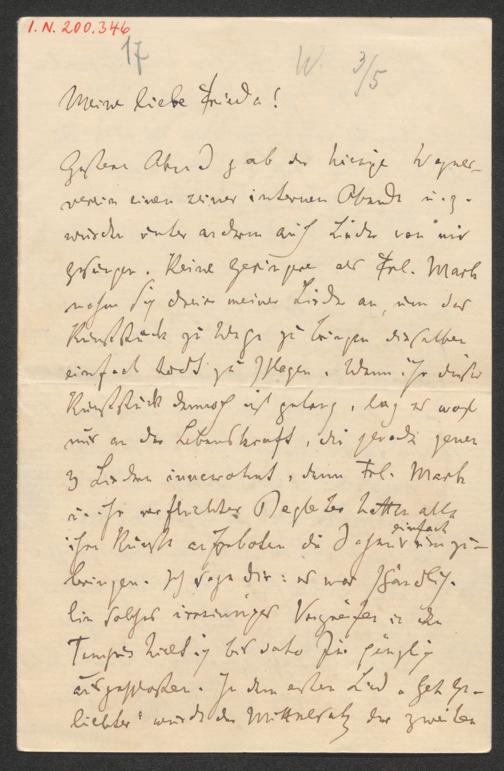 I. N. 200.346
17
W. 3/5
Meine liebe Frieda!
Gestern Abend gab der hiesige Wagner-
verein einen seiner internen Abende u. z.
wurden unter andern auch Lieder von mir
gesungen. Keine geringere als Frl. Mark
nahm sich dreier meiner Lieder an, um das
Kunststück zu Wege zu bringen dieselben
einfach todt zu schlagen. Wenn ihr dieses
Kunststück dennoch nicht gelang, lag es wohl
nur an der Lebenskraft, die gerade jenen
3 Liedern innewohnt, denn Frl. Mark
u. ihr verfluchter Begleiter hatten alle
ihre Kunst aufgeboten die einfach umzu-
bringen. Ich sage dir: es war schändlich.
Ein solches irrsinniges Vergreifen in den
Tempis hielt ich bis dato für gänzlich
ausgeschlossen. In dem ersten Lied „Geh Ge-
liebter" wurde der Mittelsatz der zweiten